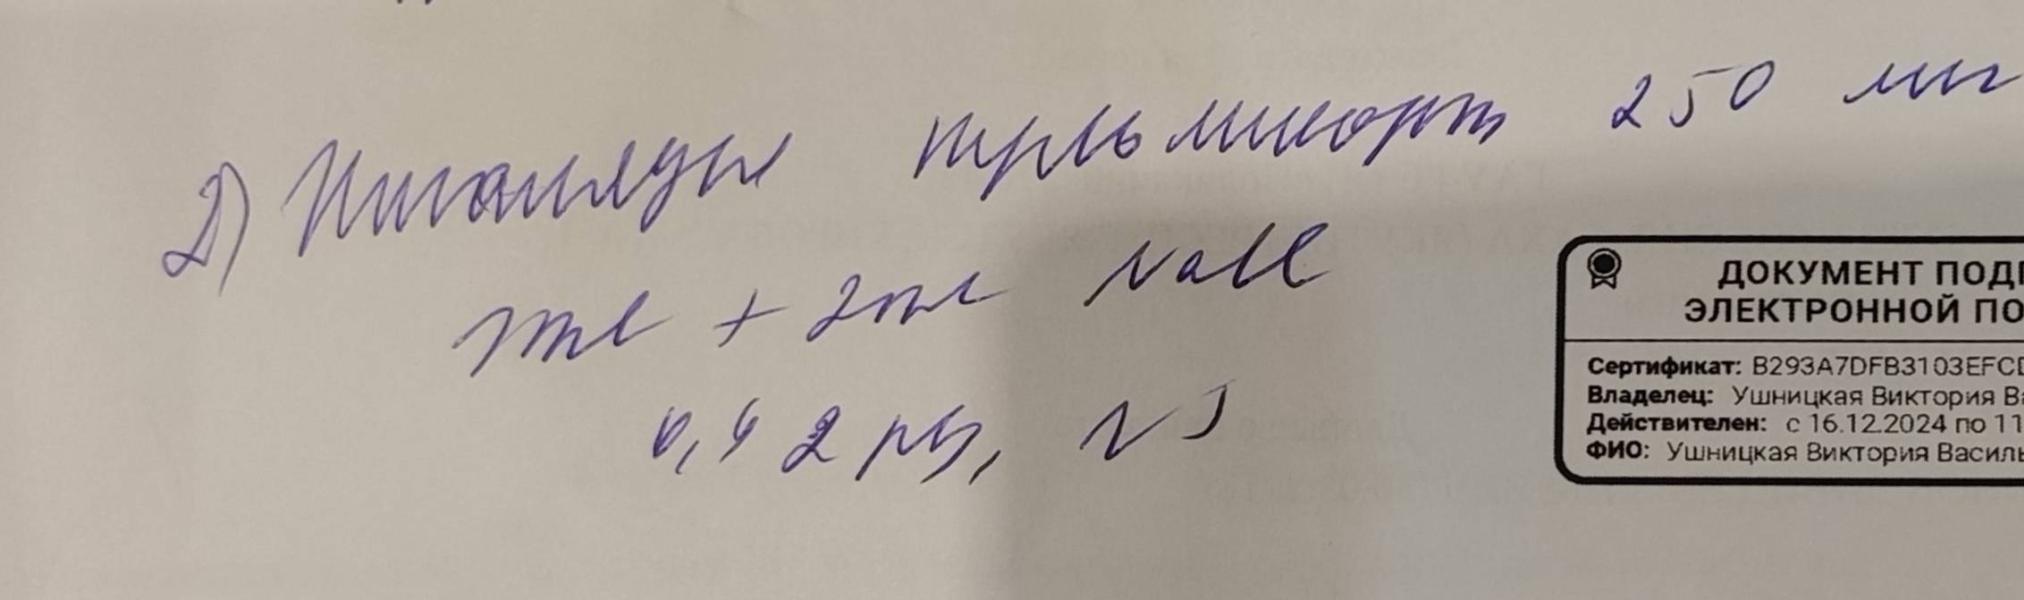 2) Ингаляции пульмикорт 250 мкг
1мл + 2мл NaCl
0,9 2 р/д, N5
ДОКУМЕНТ ПОДП
ЭЛЕКТРОННОЙ ПО
Сертификат: B293A7DFB3103EFCD
Владелец: Ушницкая Виктория Ва
Действителен: с 16.12.2024 по 11
ФИО: Ушницкая Виктория Василь